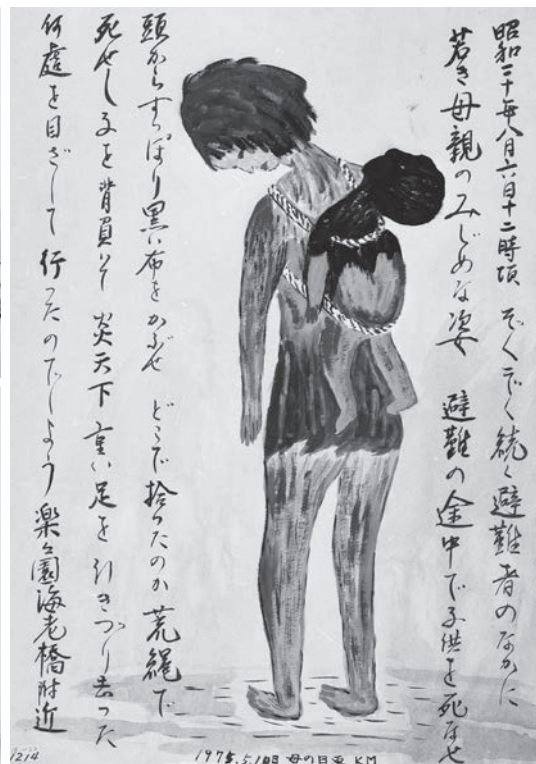 昭和二十年八月六日十二時頃 ぞくぞく続く避難者のなかに
若き母親のみじめな姿 避難の途中で子供を死なせ
頭からすっぽり黒い布をかぶせ どこで拾ったのか荒縄で
死せし子を背負いて 炎天下 重い足を引きづり去った
何處を目ざして 行ったのでしょう 楽々園海老橋附近
1214
1975.5.11日 母の日画 KM